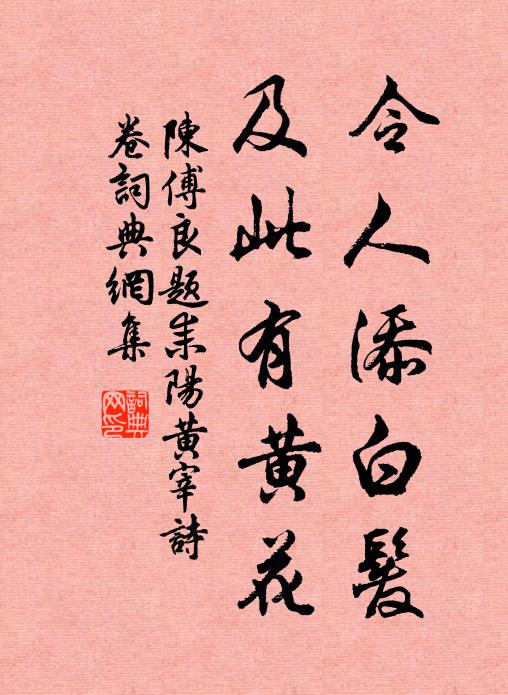 令人添白髮
及此有黄花
陳傅良題耒陽黄宰詩
卷詞典網集
詞典网印